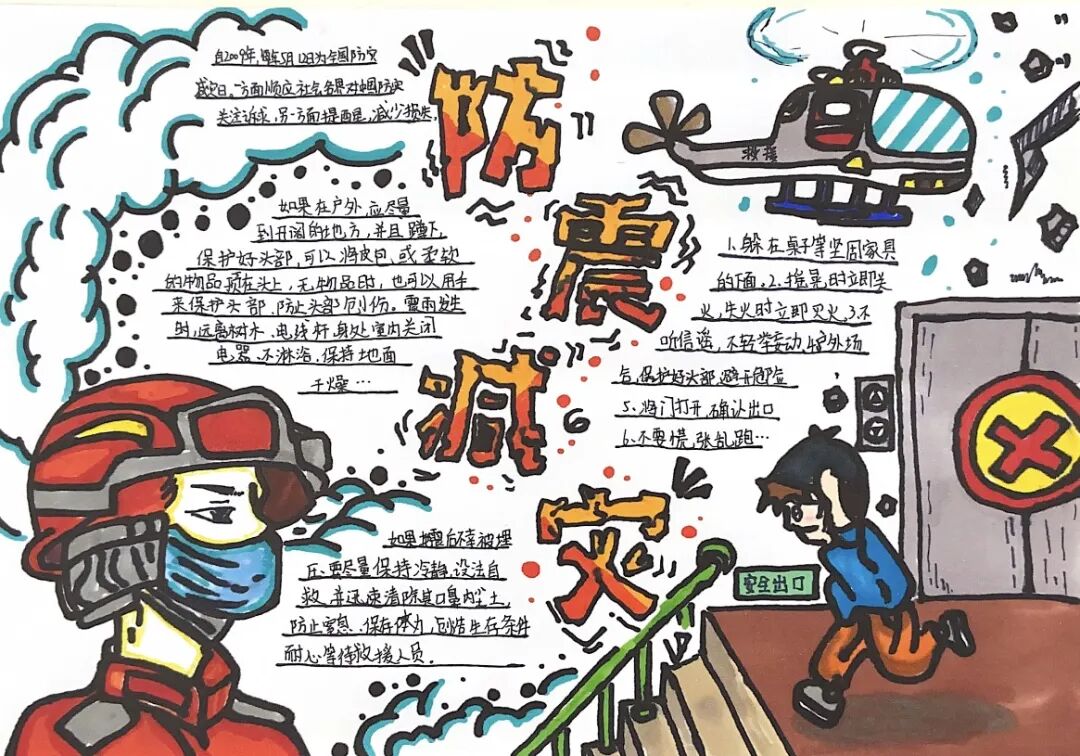 自2009年，每年5月12日为全国防灾
减灾日，一方面顺应社会各界对中国防灾
关注诉求，另一方面提醒，减少损失
防
震
减
灾
救援
如果在户外，应尽量
到开阔的地方，并且蹲下，
保护好头部，可以将皮包，或柔软
的物品顶在头上，无物品时，也可以用手
来保护头部，防止头部创伤。雷雨发生
时，远离树木、电线杆，身处室内关闭
电器，不淋浴，保持地面
干燥…
1、躲在桌子等坚固家具
的下面。2、摇晃时立即关
火，失火时立即灭火，3、不
听信谣，不轻举妄动，4、户外场
合，保护好头部，避开危险
5、将门打开，确认出口
6、不要慌张乱跑…
如果地震后不幸被埋
压，要尽量保持冷静，设法自
救，并迅速清除其口鼻内尘土，
防止窒息、保存体力，
生存条件
耐心等待救援人员.
安全出口